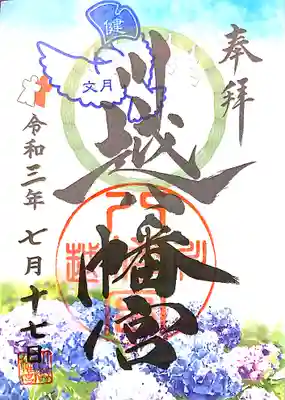 奉拝
川越八幡宮
健
文月
令和三年 七月 十七日